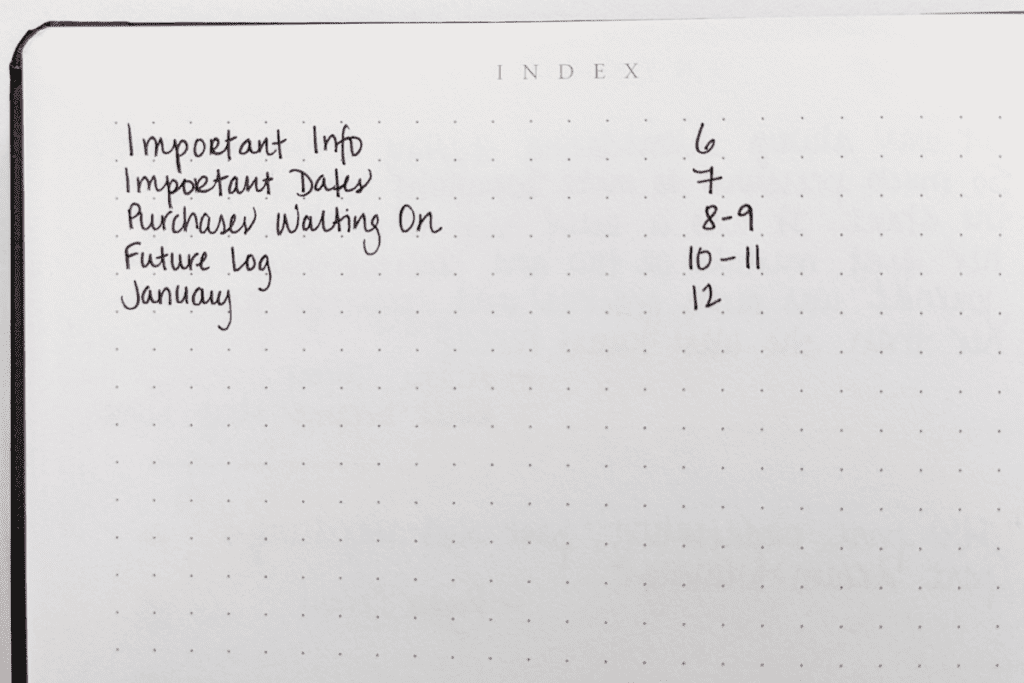 INDEX
Important Info 6
Important Dates 7
Purchases Waiting On 8-9
Future Log 10-11
January 12